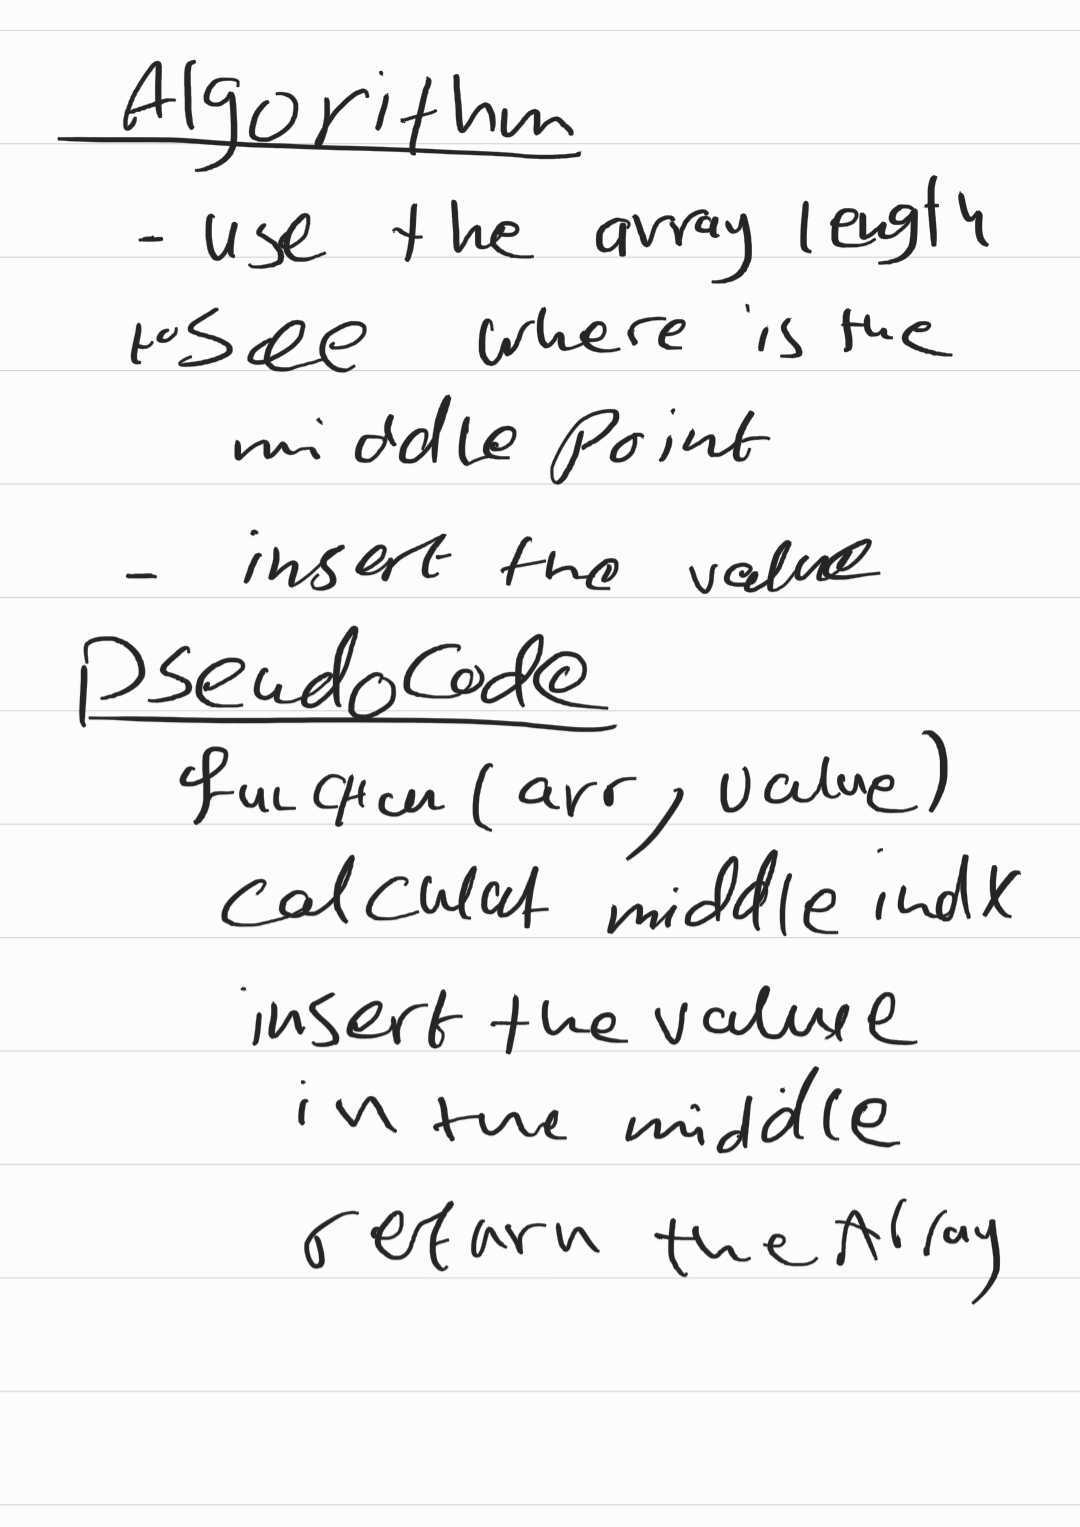 Algorithm
- use the array length
to see where is the
middle point
- insert the value
Pseudo Code
function (arr, value)
calculat middle indx
insert the value
in the middle
return the Array